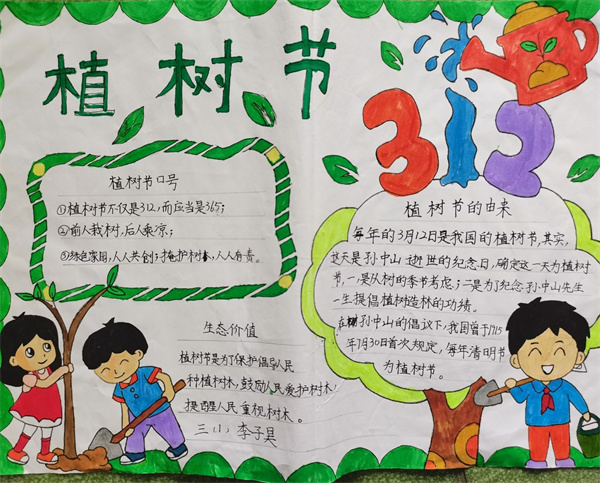 植树节
312
植树节口号
①植树节不仅是312,而应当是365;
②前人栽树,后人乘凉;
③绿色家园,人人共创;掩护树木,人人有责。
生态价值
植树节是为了保护倡导人民
种植树木,鼓励人民爱护树木,
提醒人民重视树木。
三(1)李子昊
植树节的由来
每年的3月12日是我国的植树节,其实,
这天是孙中山逝世的纪念日,确定这一天为植树
节,一是从树的季节考虑;二是为了纪念孙中山先生
一生提倡植树造林的功绩。
在孙中山的倡议下,我国曾于1915
年7月30日首次规定,每年清明节
为植树节。